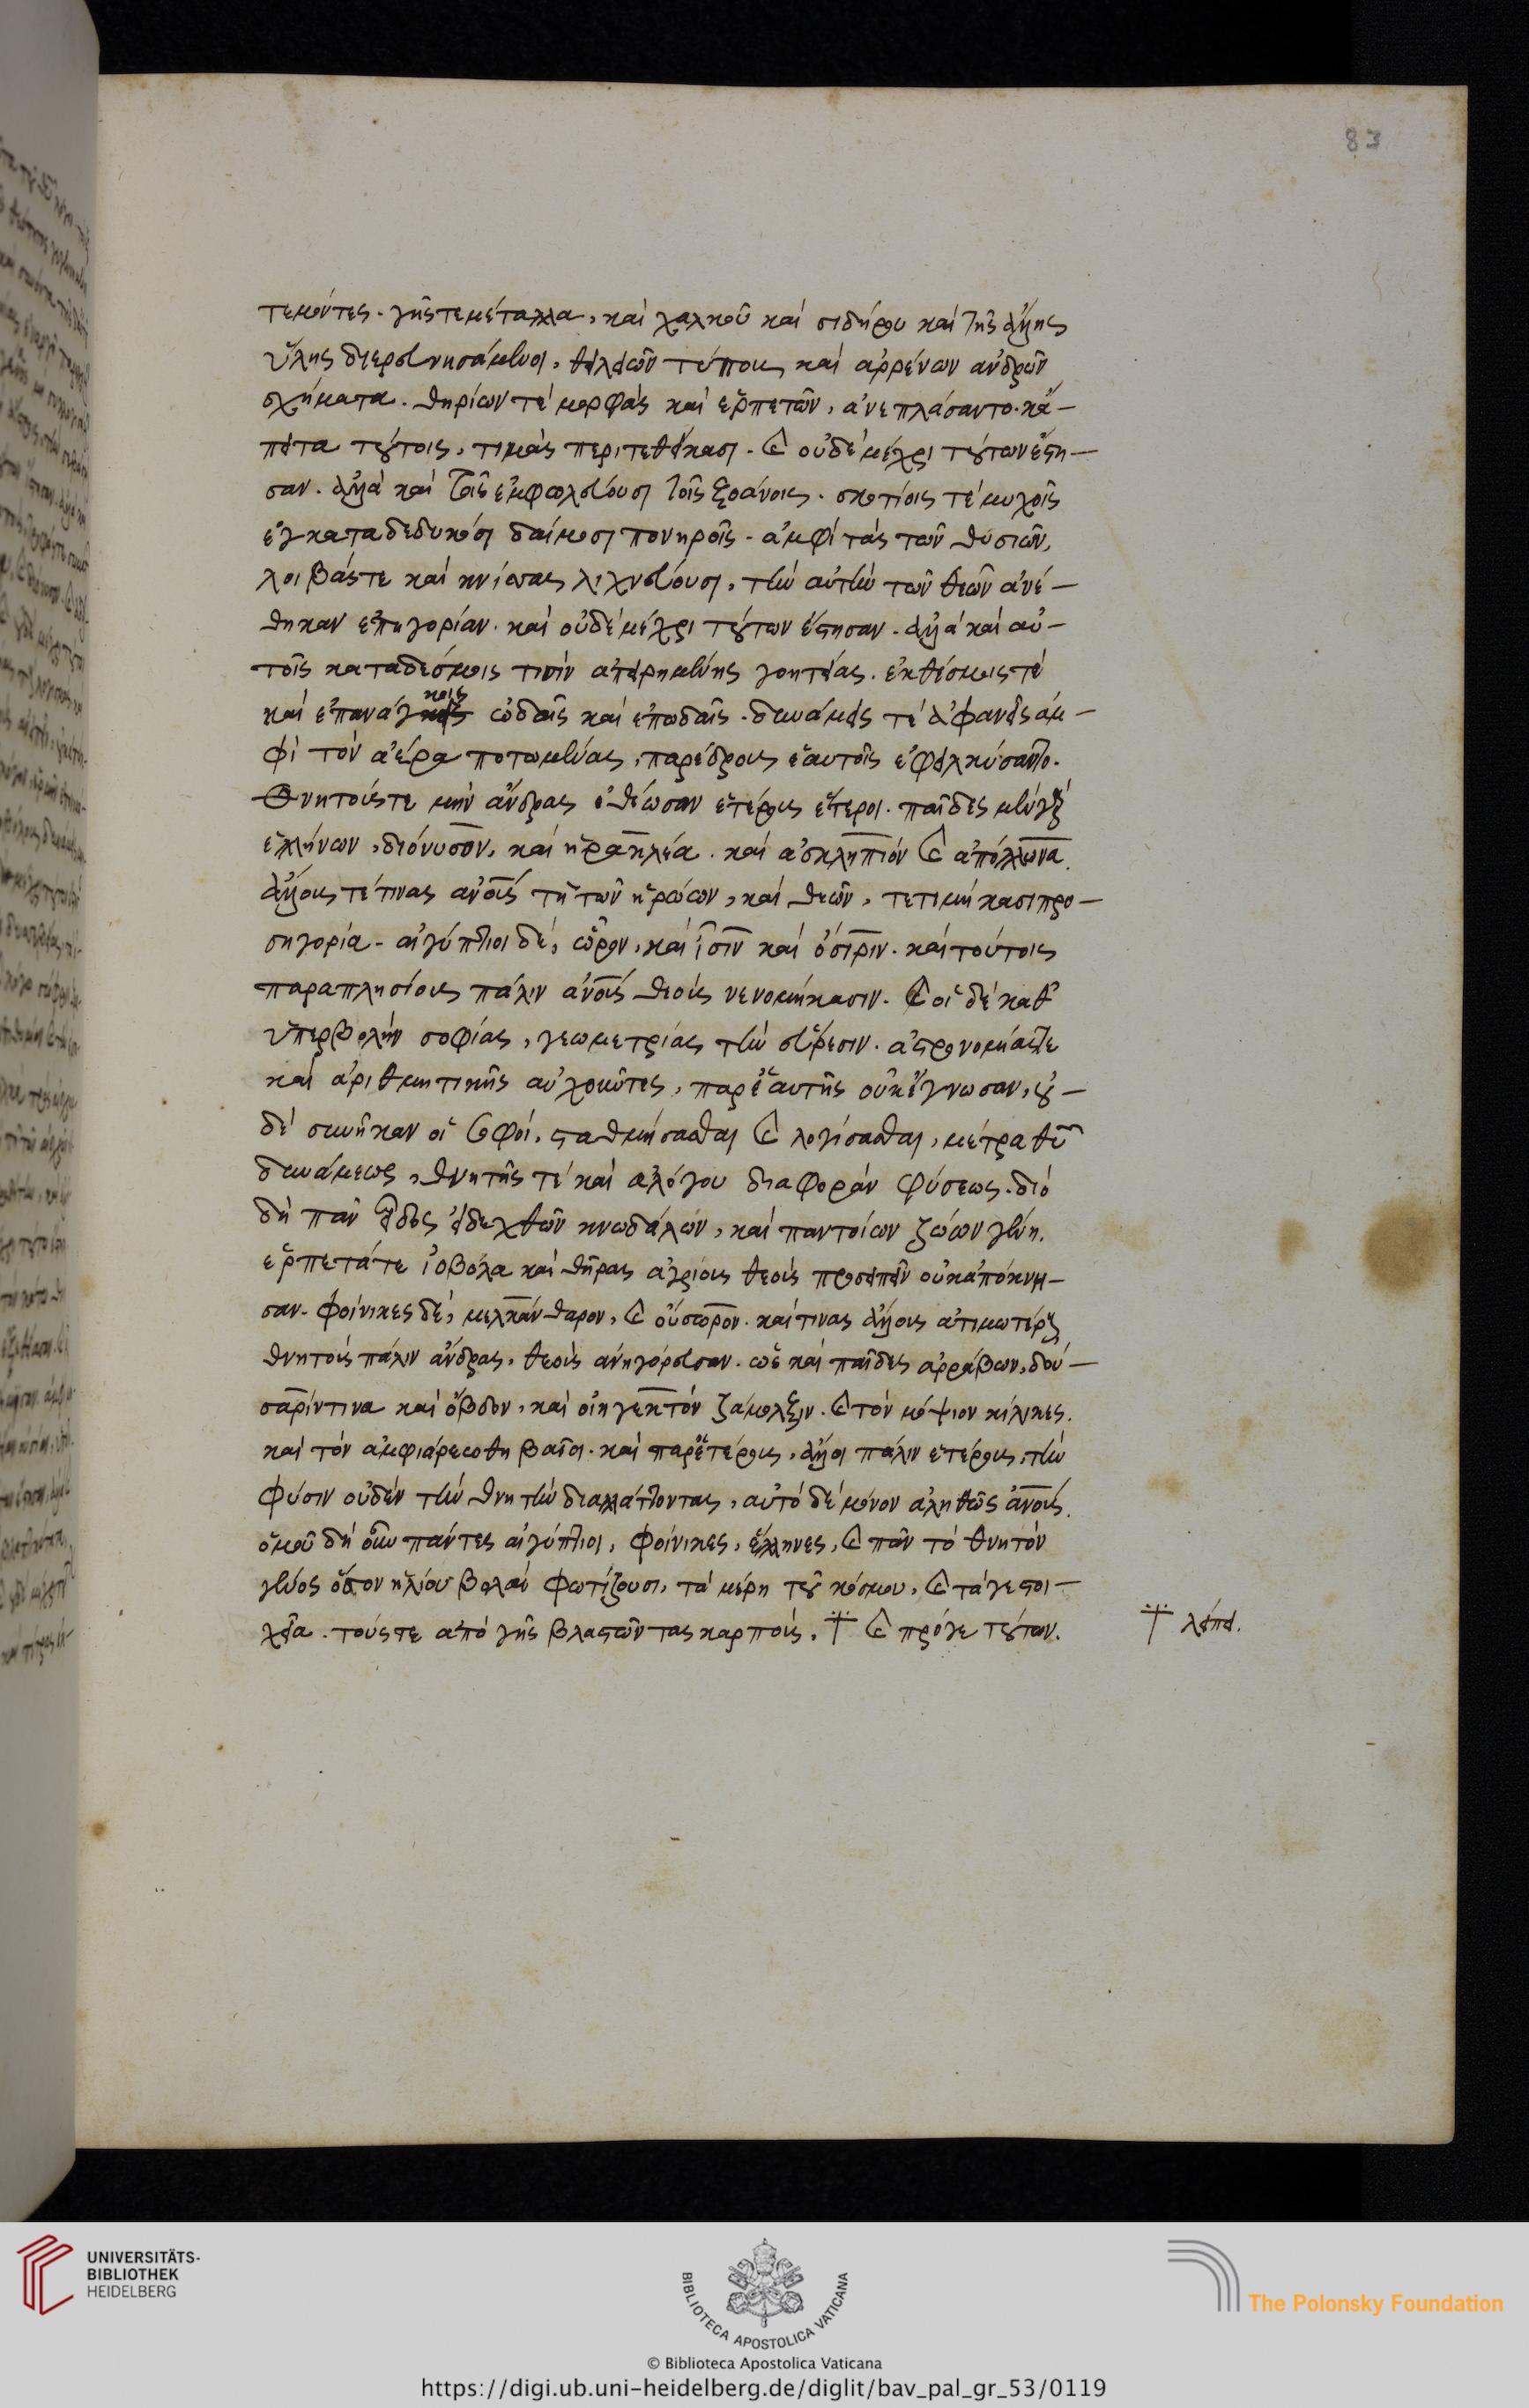 83
τεμόντες. γῆς τε μέταλλα, καὶ χαλκοῦ καὶ σιδήρου καὶ τῆς ἄλλης
ὕλης διερευνησάμενοι, θηλειῶν τύπους καὶ ἀρρένων ἀνδρῶν
σχήματα. θηρίων τὲ μορφὰς καὶ ἑρπετῶν, ἀνεπλάσαντο. κἄ-
πειτα τούτοις, τιμὰς περιτεθείκασι. καὶ οὐδὲ μέχρι τούτων ἔστη-
σαν. ἀλλὰ καὶ τοῖς ἐμφωλεύουσι τοῖς ξοάνοις. σκοτίοις τὲ μυχοῖς
ἐγκαταδεδυκόσι δαίμοσι πονηροῖς. ἀμφὶ τὰς τῶν θυσιῶν,
λοιβάς τε καὶ κνίσσας λιχνεύουσι, τὴν αὐτὴν τῶν θεῶν ἀνέ-
θηκαν ἐπηγορίαν. καὶ οὐδὲ μέχρι τούτων ἔστησαν. ἀλλὰ καὶ αὐ-
τοῖς καταδέσμοις τισὶν ἀπειρημένης γοητείας. ἐκθέσμοις τὲ
καὶ ἐπανάγκοις ὠδαῖς καὶ ἐπωδαῖς. δυνάμεις τὲ ἀφανεῖς ἀμ-
φὶ τὸν ἀέρα ποτωμένας, παρέδρους ἑαυτοῖς ἐφειλκύσαντο.
Θνητούς τε μὴν ἄνδρας ἐθέωσαν ἑτέρους ἕτεροι. παῖδες μὲν γὰρ
ἑλλήνων, διόνυσον, καὶ ἡρακλέα. καὶ ἀσκληπιόν καὶ ἀπόλλωνα.
ἄλλους τέ τινας ἀνοὺς τῇ τῶν ἡρώων, καὶ θεῶν, τετιμήκασι προ-
σηγορία. αἰγύπτιοι δέ, ὧρον, καὶ ἶσιν καὶ ὄσιριν. καὶ τούτοις
παραπλησίους πάλιν ἀνοὺς θεοὺς νενομήκασιν. καὶ οἱ δὲ καθ'
ὑπερβολὴν σοφίας, γεωμετρίας τὴν εὕρεσιν. ἀστρονομίας τε
καὶ ἀριθμητικῆς αὐχοῦντες, παρ' ἑαυτῆς οὐκ ἔγνωσαν, οὐ-
δὲ συνῆκαν οἱ σοφοί, σταθμήσασθαι καὶ λογίσασθαι, μέτρα θυ
δυνάμεως, θνητῆς τέ καὶ ἀλόγου διαφορὰν φύσεως. διὸ
δὴ πᾶν εἶδος εἰδεχθῶν κνωδάλων, καὶ παντοίων ζώων γένη.
ἑρπετά τε ἰοβόλα καὶ θῆρας ἀγρίους θεοὺς προσειπεῖν οὐκ ἀπόκνη-
σαν. Φοίνικες δέ, μελκάνθαρον, καὶ οὔσωρον. καί τινας ἄλλους ἀτιμωτέρους
θνητοὺς πάλιν ἄνδρας, θεοὺς ἀνηγόρευσαν. ὡς καὶ παῖδες ἀρράβων, δού-
σαρίν τινα καὶ ὄβδον, καὶ οἱ γέκτον ζάμολξιν. καὶ τὸν μόψιον κίλικες.
καὶ τὸν ἀμφιάρεω θηβαῖοι. καὶ παρ' ἑτέροις, ἄλλοι πάλιν ἑτέρους, τὴν
φύσιν οὐδὲν τὴν θνητὴν διαλλάττοντας, αὐτὸ δὲ μόνον ἀληθῶς ἀνούς.
ὁμοῦ δὴ οὖν πάντες αἰγύπτιοι, φοίνικες, ἕλληνες, καὶ πᾶν τὸ θνητὸν
γένος ὅσον ἡλίου βολαὶ φωτίζουσι, τὰ μέρη τοῦ κόσμου, καὶ τά γε στοι-
χεῖα. τούς τε ἀπὸ γῆς βλαστῶντας καρποὺς. καὶ πρό γε τούτων.
λείπει.
UNIVERSITÄTS-
BIBLIOTHEK
HEIDELBERG
BIBLIOTECA APOSTOLICA VATICANA
The Polonsky Foundation
© Biblioteca Apostolica Vaticana
https://digi.ub.uni-heidelberg.de/diglit/bav_pal_gr_53/0119